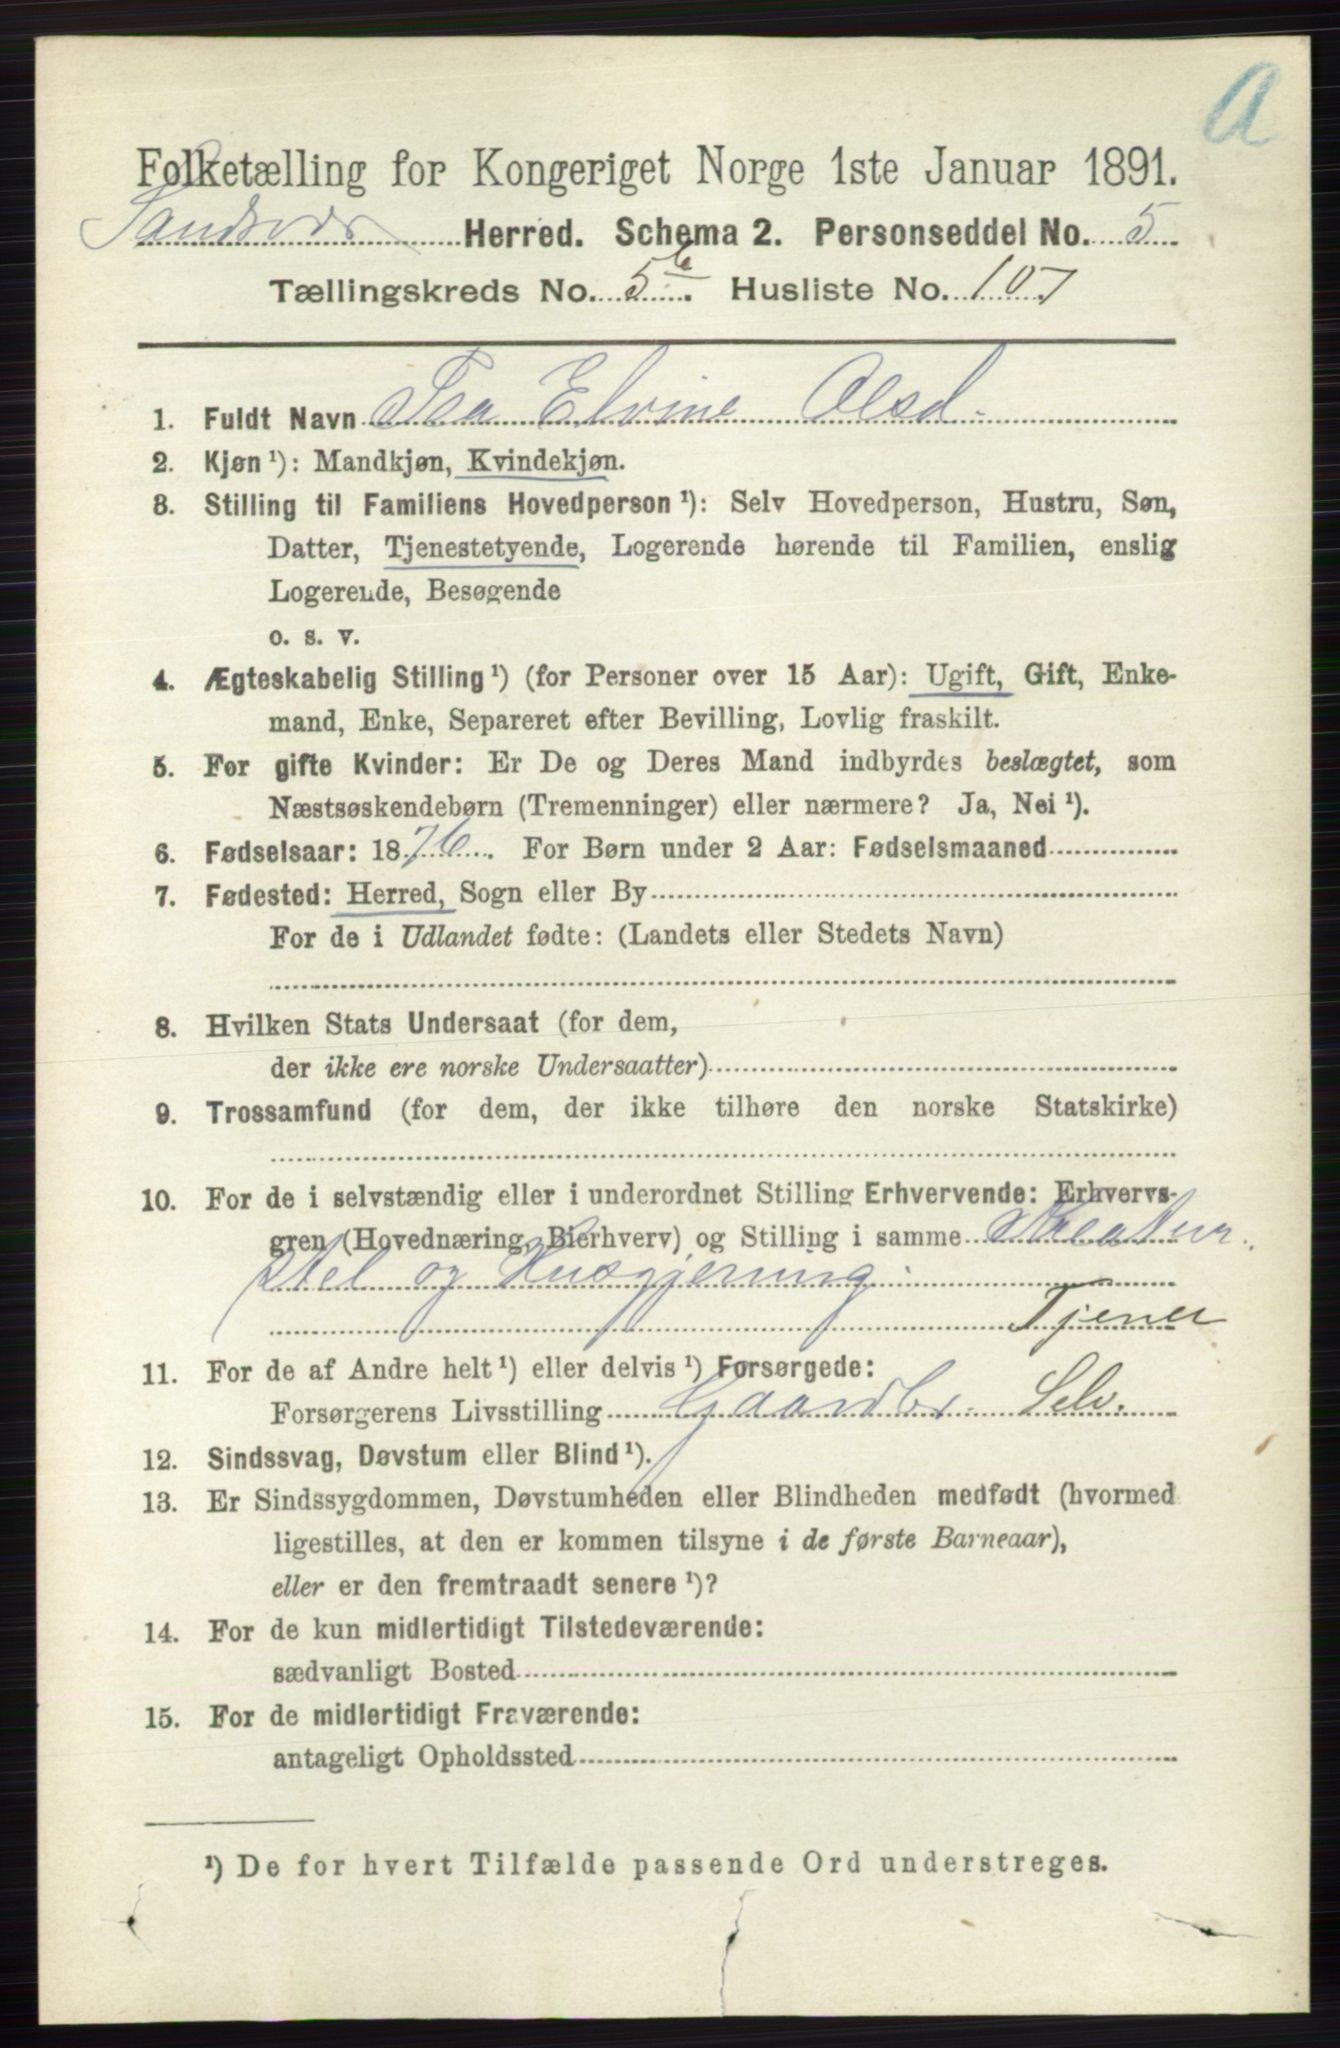 A
Folketælling for Kongeriget Norge 1ste Januar 1891.
Sandsvær Herred. Schema 2. Personseddel No. 5
Tællingskreds No. 5b. Husliste No. 107
1. Fuldt Navn Isa Elvine Olsd.
2. Kjøn ¹): Mandkjøn, Kvindekjøn.
3. Stilling til Familiens Hovedperson ¹): Selv Hovedperson, Hustru, Søn,
Datter, Tjenestetyende, Logerende hørende til Familien, enslig
Logerende, Besøgende
o. s. v.
4. Ægteskabelig Stilling ¹) (for Personer over 15 Aar): Ugift, Gift, Enke-
mand, Enke, Separeret efter Bevilling, Lovlig fraskilt.
5. For gifte Kvinder: Er De og Deres Mand indbyrdes beslægtet, som
Næstsøskendebørn (Tremenninger) eller nærmere? Ja, Nei ¹).
6. Fødselsaar: 1876. For Børn under 2 Aar: Fødselsmaaned
7. Fødested: Herred, Sogn eller By
For de i Udlandet fødte: (Landets eller Stedets Navn)
8. Hvilken Stats Undersaat (for dem,
der ikke ere norske Undersaatter)
9. Trossamfund (for dem, der ikke tilhøre den norske Statskirke)
10. For de i selvstændig eller i underordnet Stilling Erhvervende: Erhvervs-
gren (Hovednæring, Bierhverv) og Stilling i samme Kreatur
stel og Husgjerning.
Tjener
11. For de af Andre helt ¹) eller delvis ¹) Forsørgede:
Forsørgerens Livsstilling Gaardbr. Selv.
12. Sindssvag, Døvstum eller Blind ¹).
13. Er Sindssygdommen, Døvstumheden eller Blindheden medfødt (hvormed
ligestilles, at den er kommen tilsyne i de første Barneaar),
eller er den fremtraadt senere ¹)?
14. For de kun midlertidigt Tilstedeværende:
sædvanligt Bosted
15. For de midlertidigt Fraværende:
antageligt Opholdssted
¹) De for hvert Tilfælde passende Ord understreges.